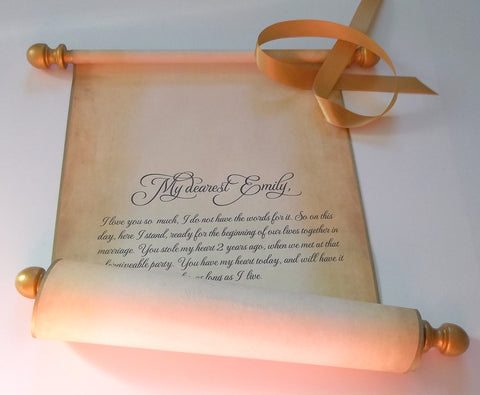 My dearest Emily,
I love you so much, I do not have the words for it. So on this
day, here I stand, ready for the beginning of our lives together in
marriage. You stole my heart 2 years ago, when we met at that
party. You have my heart today, and will have it
as long as I live.